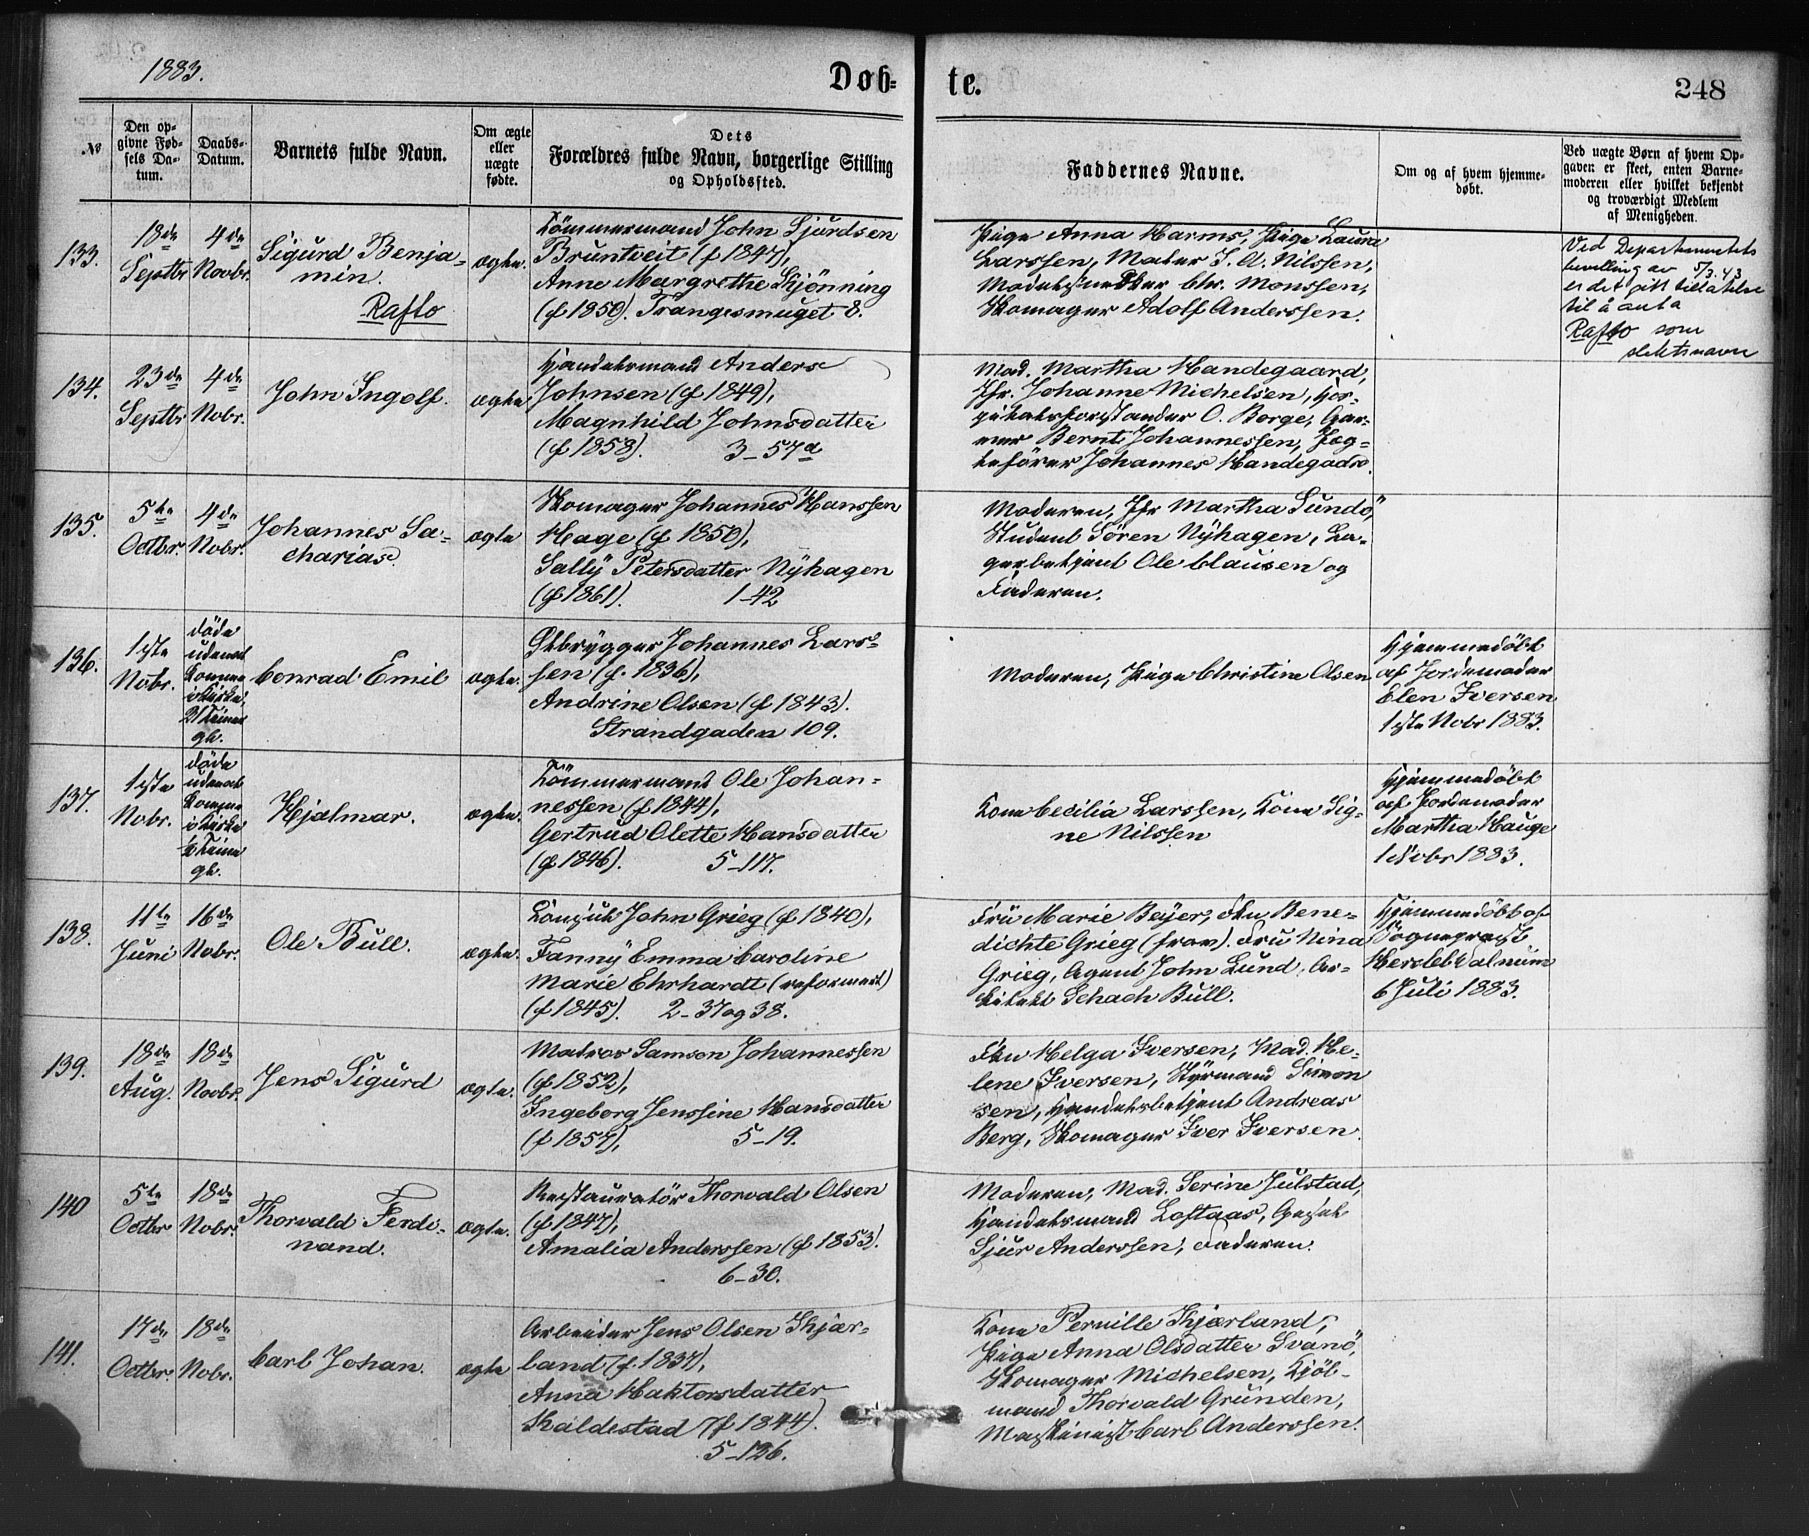 1883.
Døb-
te.
248
№
Den op-
givne Fød-
sels Da-
tum.
Daabs-
Datum.
Barnets fulde Navn.
Om ægte
eller
uægte
fødte.
Dets
Forældres fulde Navn, borgerlige Stilling
og Opholdssted.
Faddernes Navne.
Om og af hvem hjemme-
døbt.
Ved uægte Børn af hvem Op-
gaven er skeet, enten Barne-
moderen eller hvilket bekjendt
og troværdigt Medlem
af Menigheden.
133.
18de
Septbr
4de
Novbr.
Sigurd Benja-
min.
Rafto
ægte.
Tömmermand John Sjurdsen
Bruntveit (f 1847),
Anne Margrethe Skjönning
(f 1850). Trangesmuget 8.
Pige Anna Harms, Pige Laura
Larssen, Maler S. A. Nilssen,
Modelsnedker Chr. Monssen,
Skomager Adolf Anderssen.
Ved Departementets
bevilling av 5/3.43
er det gitt tillatelse
til å anta
Rafto som
slektsnavn
134.
23de
Septbr
4de
Nobr.
John Ingolf.
ægte
Handelsmand Anders
Johnsen (f 1849),
Magnhild Johnsdatter
(f 1858). 3-57a
Mad. Martha Handegaard,
Jfr. Johanne Michelsen, Hos-
pitalsforstander O. Borge, Gar-
ver Bernt Johannessen, Fæg-
tefører Johannes Handegaard.
135.
5te
Octbr.
4de
Nobr.
Johannes Sa-
charias.
ægte
Skomager Johannes Hanssen
Hage (f 1850),
Sally Petersdatter Nÿhagen
(f 1861). 1-42
Moderen, Jfr Martha Sundö,
Student Sören Nÿhagen, La-
gerbetjent Ole Clausen og
Faderen.
136.
1ste
Nobr.
döde
udenat
komme
i Kirke,
gl.
Conrad Emil
ægte.
Ølbrÿgger Johannes Lars-
sen (f. 1836),
Andrine Olsen (f 1843).
Strandgaden 109.
Moderen, Pige Christine Olsen
Hjemmedöbt
af Jordemoder
Elen Iversen
1ste Nobr 1883.
137.
1ste
Nobr.
döde
udenat
komme
i Kirke
gl.
Hjalmar.
ægte.
Tömmermand Ole Johan-
nessen (f 1844),
Gertrud Olette Hansdatter
(f 1846). 5-117.
Kone Cecilia Larssen, Kone Sig-
ne Nilssen
Hjemmedöbt
af Jordemoder
Martha Hauge
1 Nobr 1883.
138.
11te
Juni
16de
Nobr.
Ole Bull.
ægte.
Konsul John Grieg (f 1840),
Fanny Emma Caroline
Marie Ehrhardt (reformert)
(f 1845). 2-37 og 38.
Frü Marie Beyer, Frk. Bene-
dichte Grieg (frav). Frü Nina
Grieg, Agent John Lund, Ar-
kitekt Schach Bull.
Hjemmedöbt af
Sognepræst
Hersleb Walnüm
6 Juli 1883.
139.
18de
Aug.
18de
Novbr.
Jens Sigurd
ægte.
Matros Samson Johannessen
(f 1852),
Ingeborg Jenssine Hansdatter
(f 1857), 5-19.
Frk Helga Iversen, Mad. He-
lene Iversen, Stÿrmand Simon
sen, Handelsbetjent Andreas
Berg, Skomager Iver Iversen.
140
5te
Octbr
18de
Nobr.
Thorvald Ferdi-
nand.
ægte.
Restauratör Thorvald Olsen
(f 1847),
Amalia Anderssen (f 1853).
6-30.
Moderen, Mad. Serine Julstad,
Handelsmand Loftaas,
Sjur Anderssen, Faderen.
141.
17de
Octbr.
18de
Nobr.
Carl Johan.
ægte
Arbeider Jens Olsen Skjær-
land (f. 1837),
Anna Haktorsdatter
Skaldestad (f 1844).
5-126.
Kone Pernille Skjærland,
Pige Anna Olsdatter Svanö,
Skomager Michelsen, Kjöb-
mand Thorvald Grunden,
Maskinist Carl Anderssen.